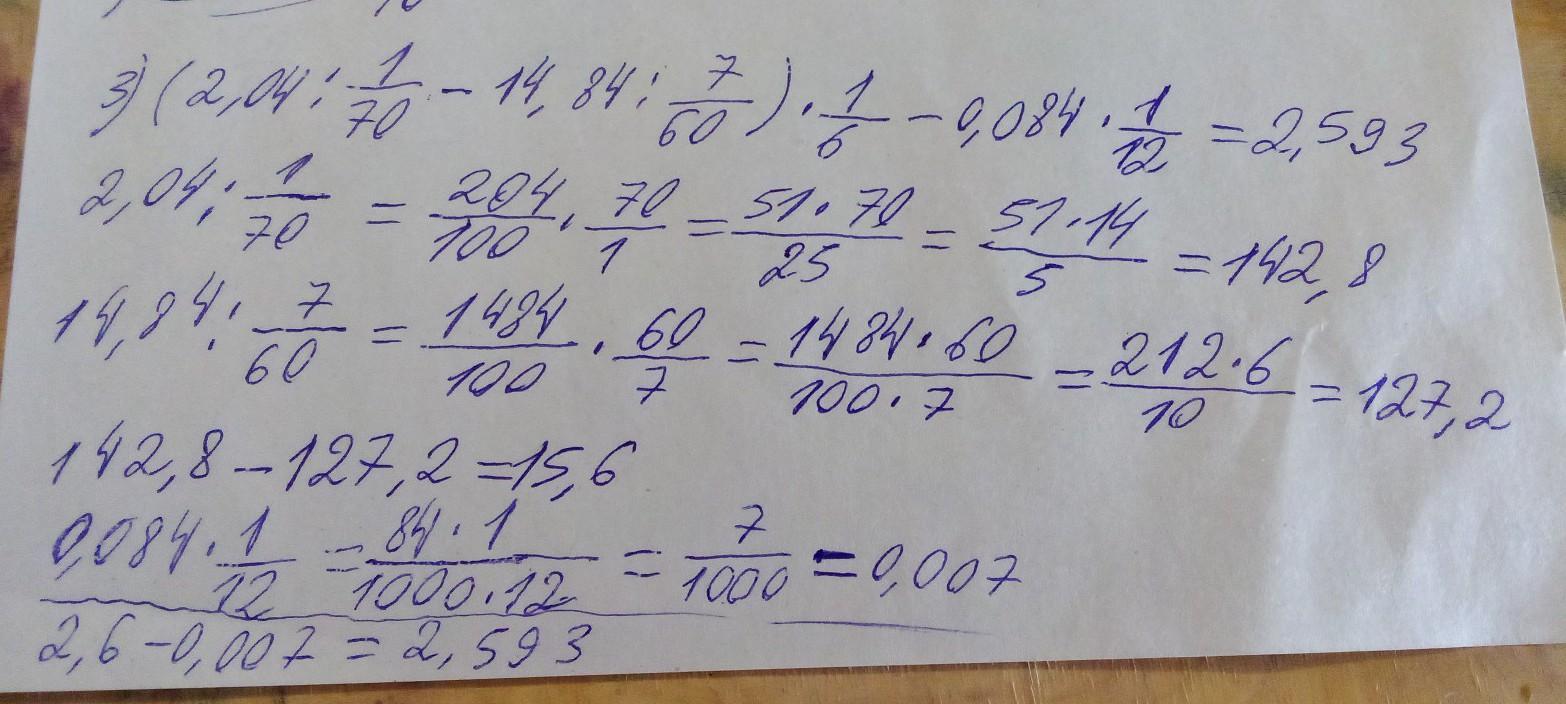 3) (2,04 : 1/70 - 14,84 : 7/60) · 1/6 - 0,084 · 1/12 = 2,593
2,04 : 1/70 = 204/100 · 70/1 = 51·70/25 = 51·14/5 = 142,8
14,84 : 7/60 = 1484/100 · 60/7 = 1484·60/100·7 = 212·6/10 = 127,2
142,8 - 127,2 = 15,6
0,084 · 1/12 = 84·1/1000·12 = 7/1000 = 0,007
2,6 - 0,007 = 2,593